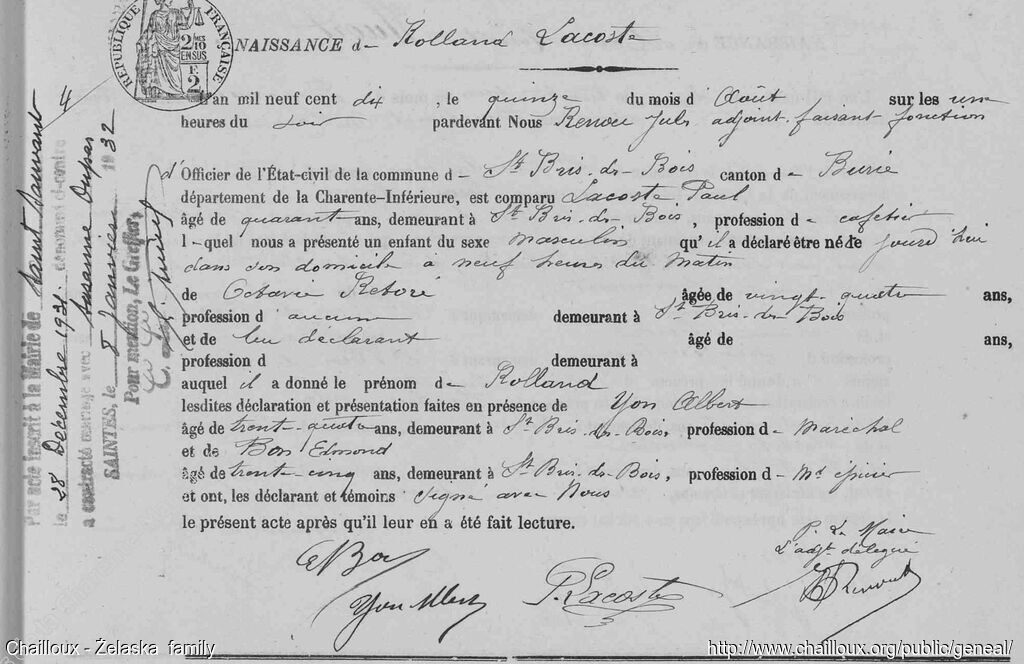 RÉPUBLIQUE FRANÇAISE
2/10
EN SUS
F
2
4
NAISSANCE d- Rolland Lacoste
L'an mil neuf cent dix, le quinze du mois d'Août sur les une
heures du soir pardevant Nous Renou Juls adjoint faisant fonction
d'Officier de l'État-civil de la commune d- St Bris-ds-Bois canton d- Burie
département de la Charente-Inférieure, est comparu Lacoste Paul
âgé de quarant ans, demeurant à St Bris-ds-Bois, profession d- cafetier
l-quel nous a présenté un enfant du sexe masculin qu'il a déclaré être né de jourd'hui
dans son domicile à neuf heures du matin
de Octavie Reboré âgée de vingt-quatre ans,
profession d'aucun demeurant à St Bris-ds-Bois
et de lui déclarant âgé de ans,
profession d demeurant à
auquel il a donné le prénom d- Rolland
lesdites déclaration et présentation faites en présence de Yon Albert
âgé de trent-quatre ans, demeurant à St Bris-ds-Bois, profession d- Maréchal
et de Bon Edmond
âgé de trente-cinq ans, demeurant à St Bris-ds-Bois, profession d- Md épicier
et ont, les déclarant et témoins signé avec Nous
le présent acte après qu'il leur en a été fait lecture.
P. Le Maire
L'adjt délégué
E Bon
Yon Albert
P. Lacoste
Renou
Par acte inscrit à la Mairie de Saint Sauvant
le 28 Décembre 1931
a contracté mariage avec Susanne Dupas
SAINTES, le 8 Janvier 1932
Pour mention, Le Greffier,
Chailloux - Żelaska family
http://www.chailloux.org/public/geneal/